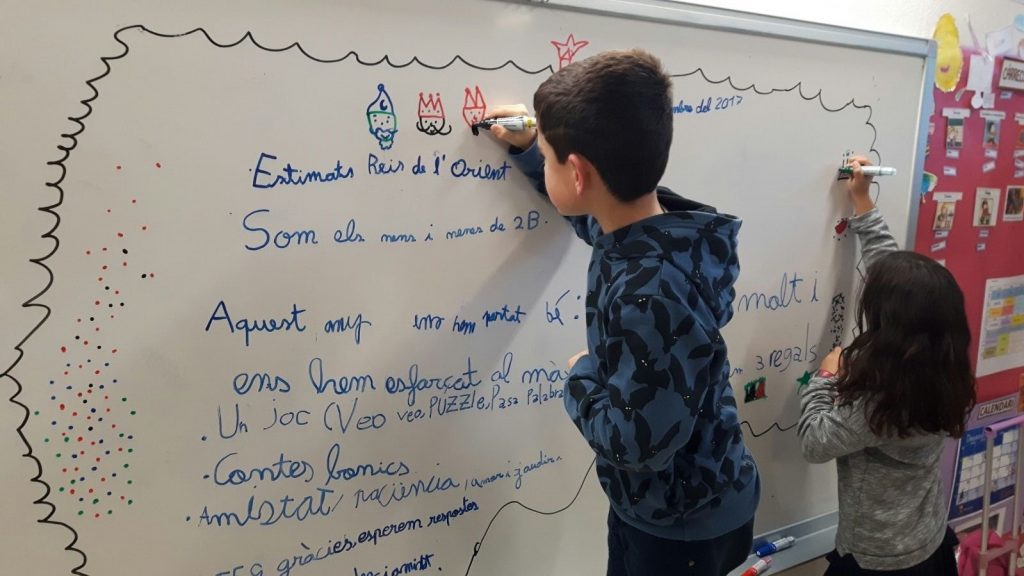 mbre del 2017
Estimats Reis de l'Orient
Som els nens i nenes de 2B.
Aquest any ens hem portat bé: malt i
ens hem esforçat al mà
3 regals
. Un joc (Veo veo, PUZZle, Pasa Palabra
. Contes bonics
. Amistat, paciència, amor i
gràcies, esperem respostes
CÀRRECS
CALENDARI